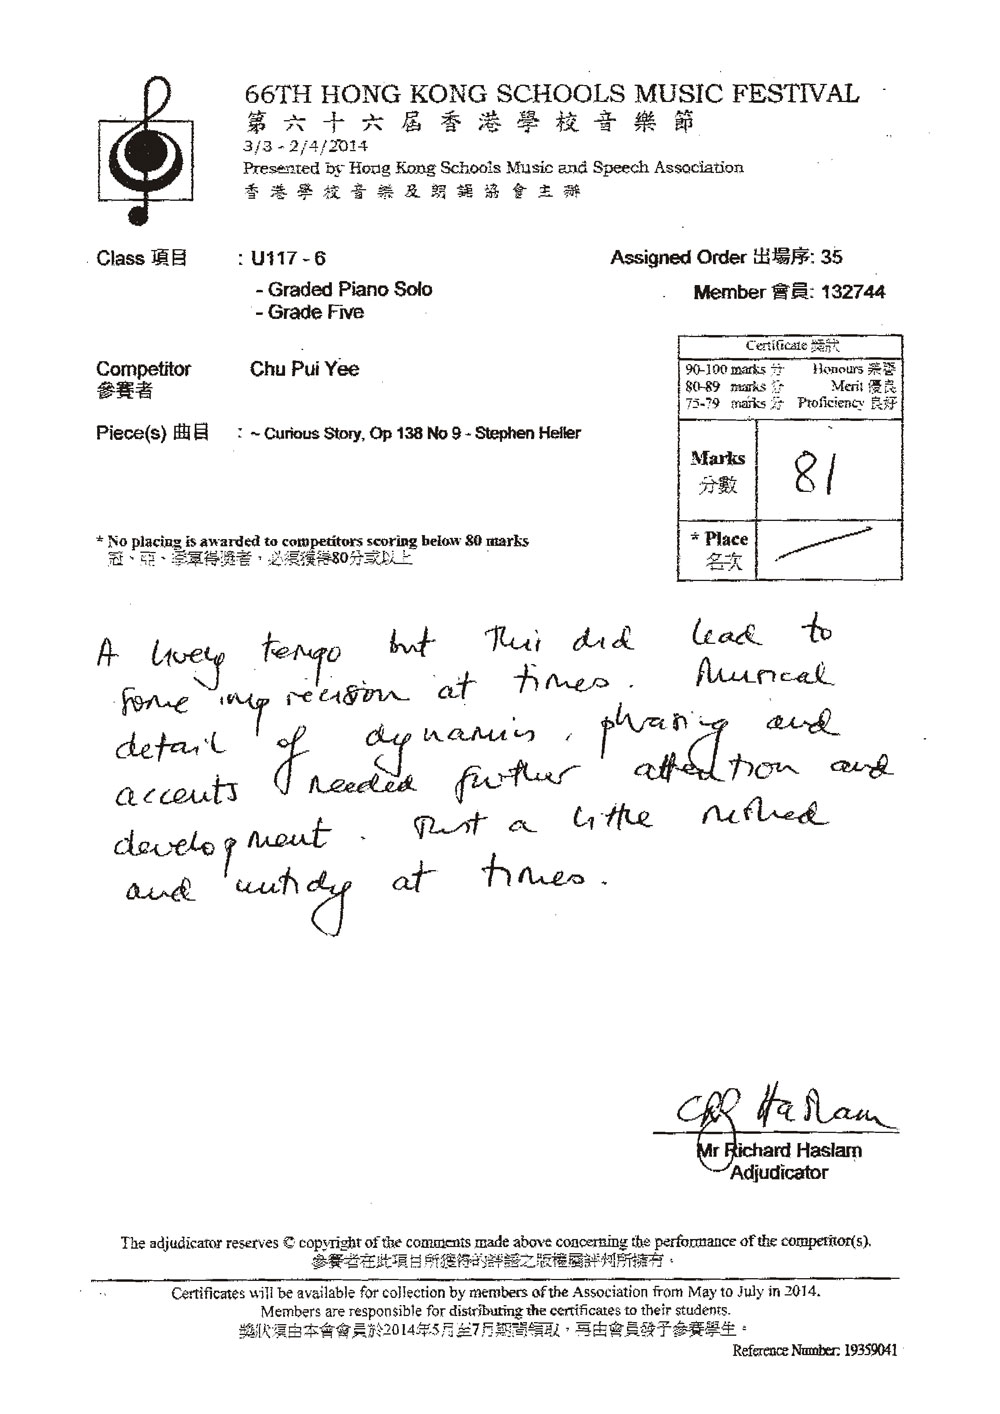 66TH HONG KONG SCHOOLS MUSIC FESTIVAL
第六十六屆香港學校音樂節
3/3 - 2/4/2014
Presented by Hong Kong Schools Music and Speech Association
香港學校音樂及朗誦協會主辦
Class 項目 : U117 - 6 Assigned Order 出場序: 35
- Graded Piano Solo Member 會員: 132744
- Grade Five
Certificate 獎狀
90-100 marks 分 Honours 榮譽
80-89 marks 分 Merit 優良
75-79 marks 分 Proficiency 良好
Competitor Chu Pui Yee
參賽者
Piece(s) 曲目 : ~ Curious Story, Op 138 No 9 - Stephen Heller
Marks 81
分數
* Place
名次
* No placing is awarded to competitors scoring below 80 marks
冠、亞、季軍得獎者，必須獲得80分或以上
A lively tempo but this did lead to
some imprecision at times. Musical
detail of dynamics, phrasing and
accents needed further attention and
development. Just a little rushed
and untidy at times.
Haslam
Mr Richard Haslam
Adjudicator
The adjudicator reserves © copyright of the comments made above concerning the performance of the competitor(s).
參賽者在此項目所獲得的評語之版權屬評判所擁有。
Certificates will be available for collection by members of the Association from May to July in 2014.
Members are responsible for distributing the certificates to their students.
獎狀須由本會會員於2014年5月至7月期間領取，再由會員發予參賽學生。
Reference Number: 19359041